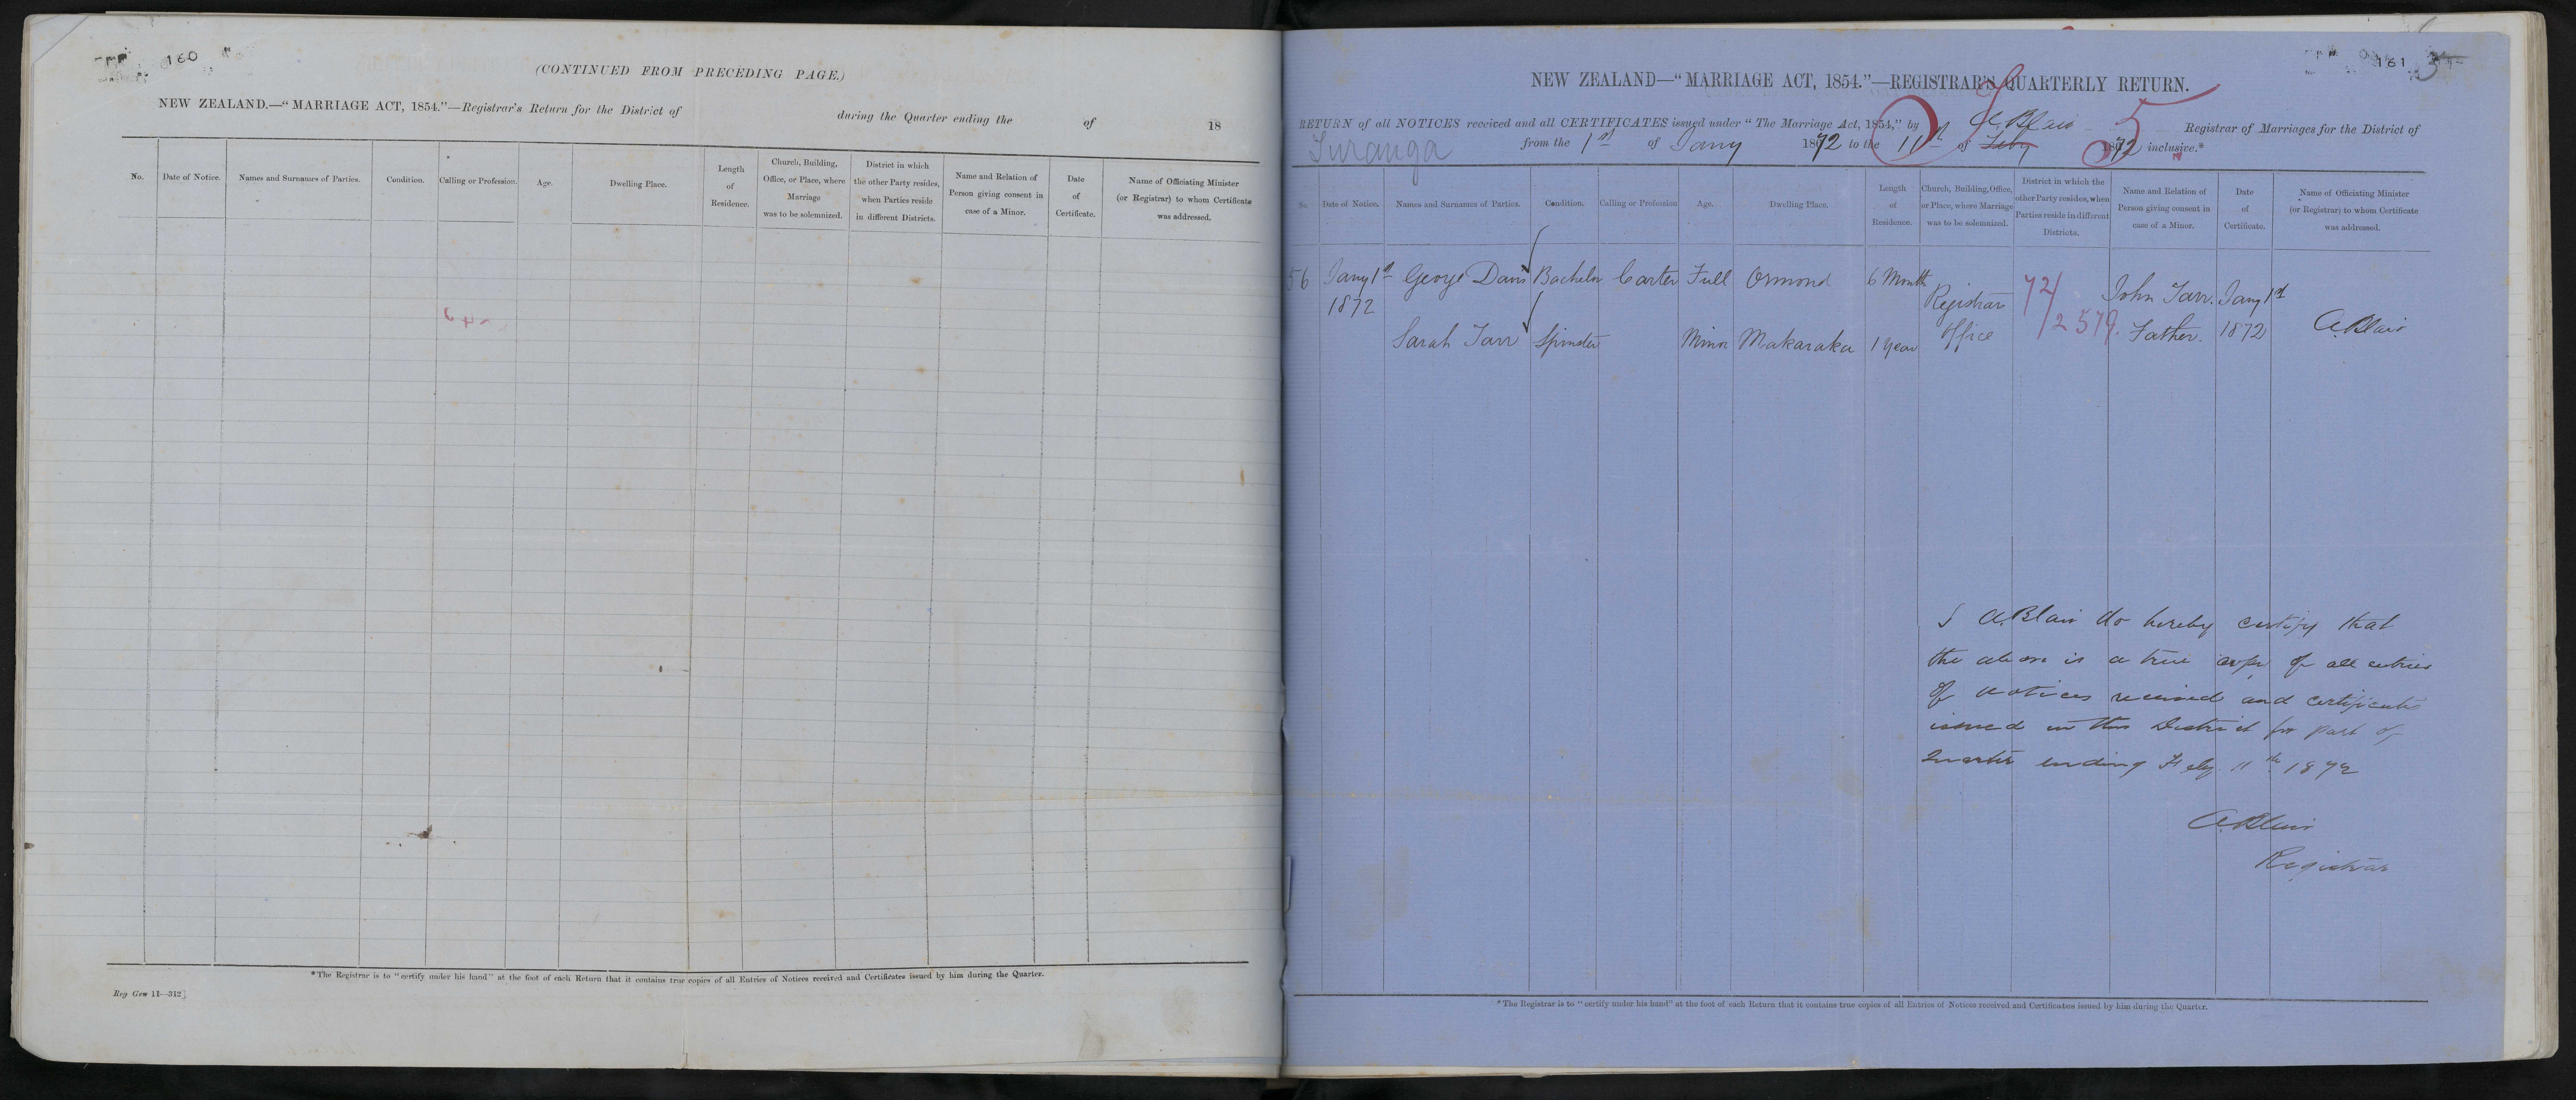 160
(CONTINUED FROM PRECEDING PAGE.)
NEW ZEALAND.—"MARRIAGE ACT, 1854."—Registrar's Return for the District of during the Quarter ending the of 18
No.
Date of Notice.
Names and Surnames of Parties.
Condition.
Calling or Profession.
Age.
Dwelling Place.
Length
of
Residence.
Church, Building,
Office, or Place, where
Marriage
was to be solemnized.
District in which
the other Party resides,
when Parties reside
in different Districts.
Name and Relation of
Person giving consent in
case of a Minor.
Date
of
Certificate.
Name of Officiating Minister
(or Registrar) to whom Certificate
was addressed.
*The Registrar is to "certify under his hand" at the foot of each Return that it contains true copies of all Entries of Notices received and Certificates issued by him during the Quarter.
Reg Gen 11—312]
161
NEW ZEALAND—"MARRIAGE ACT, 1854."—REGISTRAR'S QUARTERLY RETURN.
5
RETURN of all NOTICES received and all CERTIFICATES issued under "The Marriage Act, 1854," by A. Blair Registrar of Marriages for the District of
Turanga from the 1st of Jany 1872 to the 11th of Feby 1872 inclusive.*
No.
Date of Notice.
Names and Surnames of Parties.
Condition.
Calling or Profession
Age.
Dwelling Place.
Length
of
Residence.
Church, Building, Office,
or Place, where Marriage
was to be solemnized.
District in which the
other Party resides, when
Parties reside in different
Districts.
Name and Relation of
Person giving consent in
case of a Minor.
Date
of
Certificate.
Name of Officiating Minister
(or Registrar) to whom Certificate
was addressed.
56 Jany 1st George Davis Bachelor Carter Full Ormond 6 Month
1872 Registrar 72/ John Tarr. Jany 1st
Sarah Tarr Spinster Minor Makaraka 1 year Office 2579. Father. 1872 A Blair
I A. Blair do hereby certify that
the above is a true copy of all entries
of notices received and certificates
issued in this District for part of
Quarter ending Feby. 11th 1872
A Blair
Registrar
*The Registrar is to "certify under his hand" at the foot of each Return that it contains true copies of all Entries of Notices received and Certificates issued by him during the Quarter.